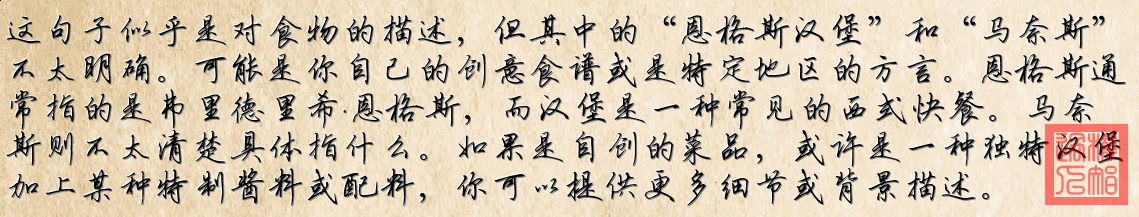 这句子似乎是对食物的描述，但其中的“恩格斯汉堡”和“马奈斯”
不太明确。可能是你自己的创意食谱或是特定地区的方言。恩格斯通
常指的是弗里德里希·恩格斯，而汉堡是一种常见的西式快餐。马奈
斯则不太清楚具体指什么。如果是自创的菜品，或许是一种独特汉堡
加上某种特制酱料或配料，你可以提供更多细节或背景描述。